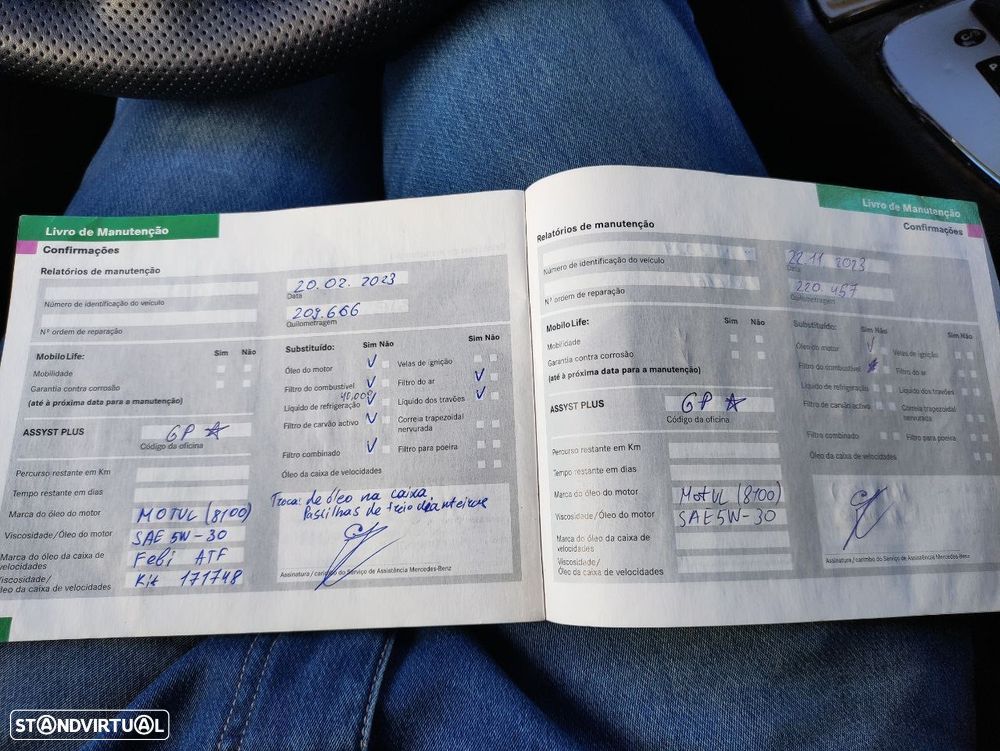 Livro de Manutenção
Confirmações
Relatórios de manutenção
20.02.2023
Data
Número de identificação do veículo
209.666
Quilometragem
Nº ordem de reparação
Mobilo Life:
Sim Não
Mobilidade
Garantia contra corrosão
(até à próxima data para a manutenção)
ASSYST PLUS
GP
Código da oficina
Percurso restante em Km
Tempo restante em dias
Marca do óleo do motor
MOTUL (8100)
Viscosidade/Óleo do motor
SAE 5W-30
Marca do óleo da caixa de
velocidades
Febi ATF
Viscosidade/
Óleo da caixa de velocidades
Kit 171748
Substituído:
Sim Não
Sim Não
Óleo do motor
Velas de ignição
Filtro do combustível
Filtro do ar
Líquido de refrigeração
Líquido dos travões
Filtro de carvão activo
Correia trapezoidal
nervurada
Filtro combinado
Filtro para poeira
Óleo da caixa de velocidades
Troca: de óleo na caixa,
Pastilhas de freio dianteiras
Assinatura / carimbo do Serviço de Assistência Mercedes-Benz
Livro de Manutenção
Confirmações
Relatórios de manutenção
22.11.2023
Data
Número de identificação do veículo
220.457
Quilometragem
Nº ordem de reparação
Mobilo Life:
Sim Não
Mobilidade
Garantia contra corrosão
(até à próxima data para a manutenção)
ASSYST PLUS
GP
Código da oficina
Percurso restante em Km
Tempo restante em dias
Marca do óleo do motor
MOTUL (8100)
Viscosidade/Óleo do motor
SAE 5W-30
Marca do óleo da caixa de
velocidades
Viscosidade/
Óleo da caixa de velocidades
Substituído:
Sim Não
Sim Não
Óleo do motor
Velas de ignição
Filtro do combustível
Filtro do ar
Líquido de refrigeração
Líquido dos travões
Filtro de carvão activo
Correia trapezoidal
nervurada
Filtro combinado
Filtro para poeira
Óleo da caixa de velocidades
Assinatura / carimbo do Serviço de Assistência Mercedes-Benz
P
STANDVIRTUAL